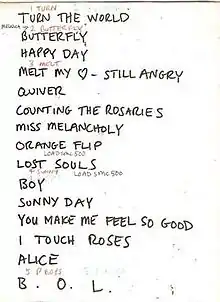 1 TURN
TURN THE WORLD
2 BUTTERFLY
BUTTERFLY
HAPPY DAY
3 MELT
MELT MY ♡ - STILL ANGRY
QUIVER
COUNTING THE ROSARIES
MISS MELANCHOLY
ORANGE FLIP
LOAD SMC 500
LOST SOULS
4 SUNNY LOAD SMC 500
BOY
SUNNY DAY
YOU MAKE ME FEEL SO GOOD
I TOUCH ROSES
ALICE
B. O. L.